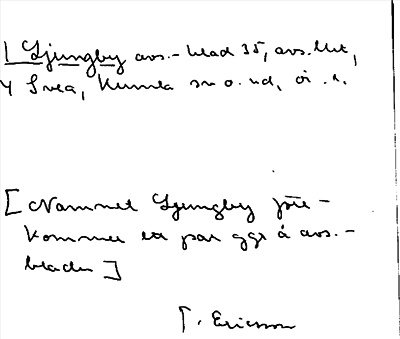 Ljungby avs.-blad 35, avs.
Svea, Kumla sn o. hd,
[Namnet Ljungby före-
kommer ett par ggr å avs.-
bladen]
T. Ericsson